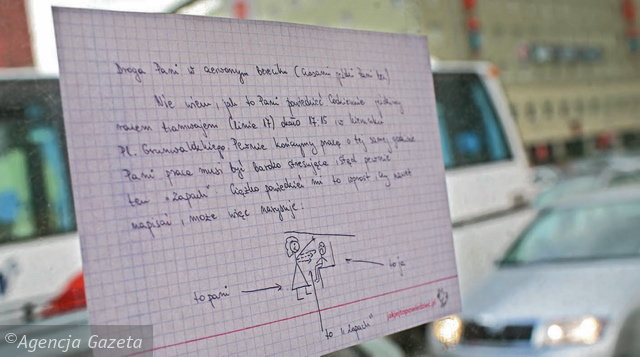 Droga Pani w czerwonym bereciku (czasami żółci Pani też)
Nie wiem, jak to Pani powiedzieć. Codziennie jeździmy
razem tramwajem (linia 17) około 17.15 w kierunku
Pl. Grunwaldzkiego. Pewnie kończymy pracę o tej samej godzinie
Pani praca musi być bardzo stresująca, stąd pewnie
ten "zapach". Ciężko powiedzieć mi to wprost, czy nawet
napisać, może więc narysuję.
to pani
to ja
to "zapach"
jakjatopowiedziec.pl
©Agencja Gazeta